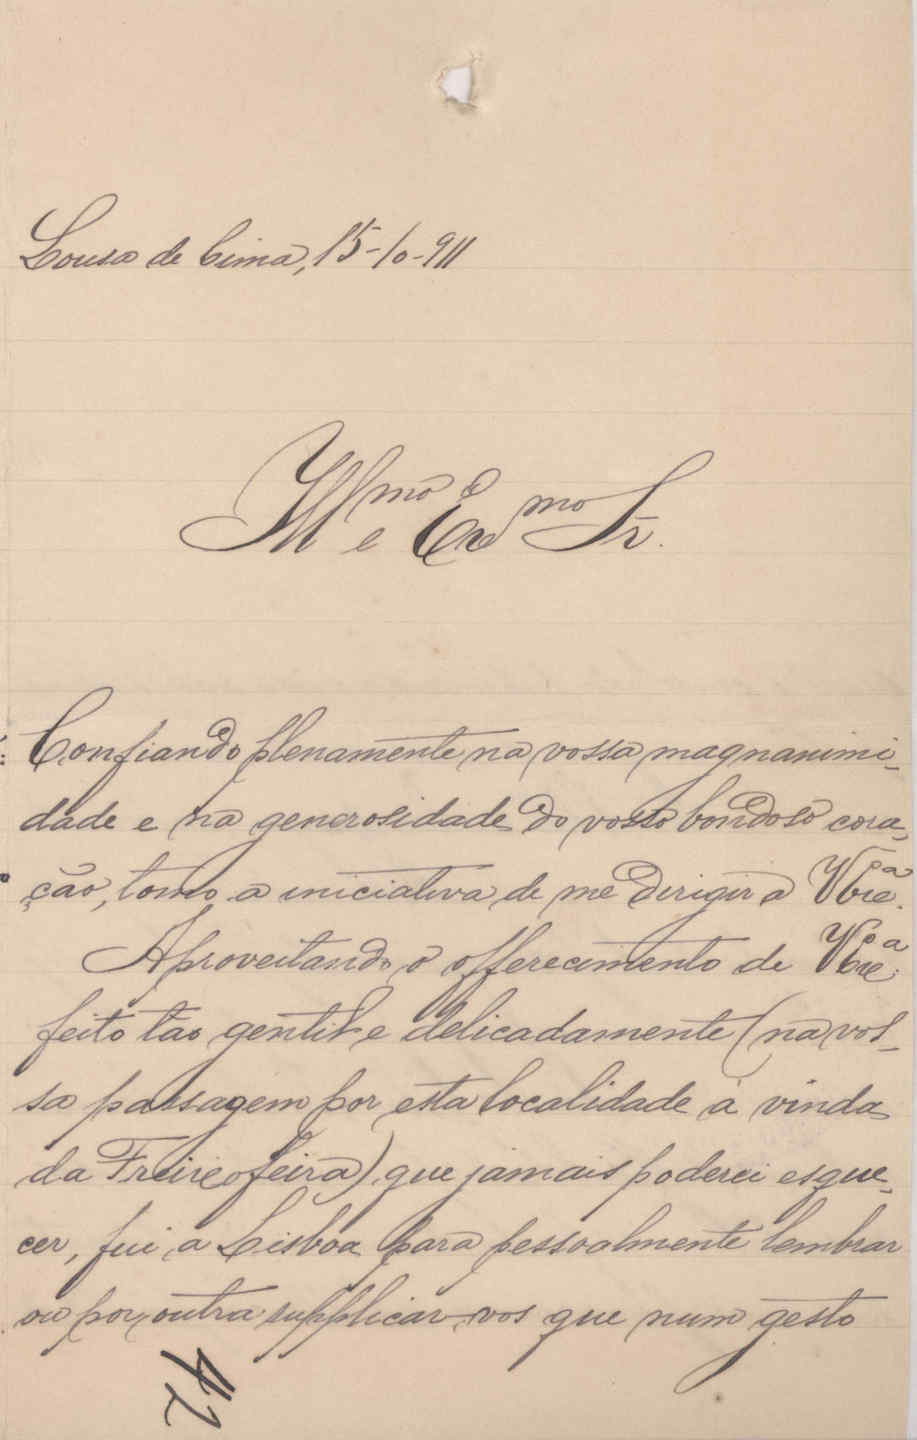 Lousa de Cima, 15-10-911
Illmo e Exmo Sr.
Confiando plenamente na vossa magnanimi-
dade e na generosidade do vosso bondoso cora-
ção, tomo a iniciativa de me dirigir a V Excia.
Aproveitando o offerecimento de V Excia.
feito tão gentil e delicadamente (na vos-
sa passagem por esta localidade á vinda
da Freixofeira) que jamais poderei esque-
cer, fui a Lisboa para pessoalmente lembrar
ou por outra supplicar-vos que num gesto
42